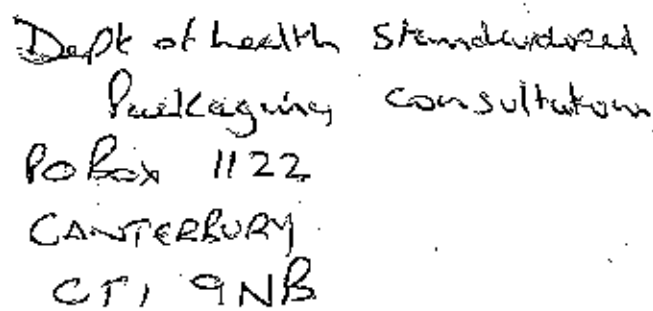 Dept of health Standardised
Packaging Consultation
PO Box 1122
CANTERBURY
CT1 9NB